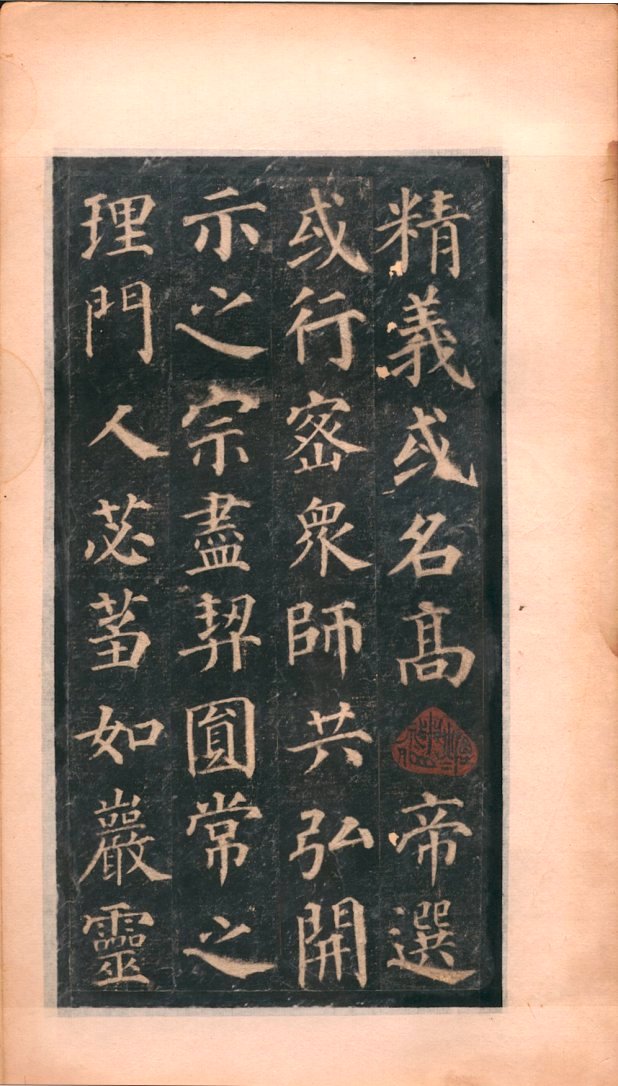 精義或名高帝選
或行密衆師共弘開
示之宗盡契圓常之
理門人苾蒭如巖靈